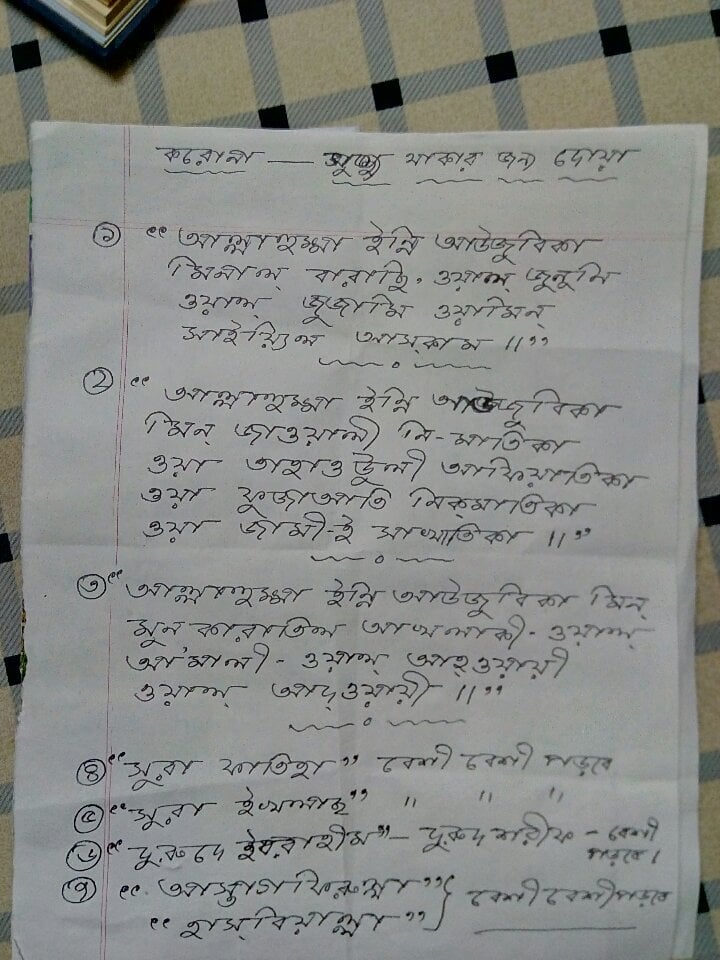 করোনা — সুস্থ থাকার জন্য দোয়া
১ "আল্লাহুম্মা ইন্নি আউজুবিকা
মিনাল্ বারাছি, ওয়াল্ জুনুনি
ওয়াল্ জুজামি ওয়ামিন্
সাইয়্যিল আস্কাম ॥"
২ "আল্লাহুম্মা ইন্নি আউজুবিকা
মিন্ জাওয়ালী নি-মাতিকা
ওয়া তাহাওউলী আফিয়াতিকা
ওয়া ফুজাআতি নিক্মাতিকা
ওয়া জামী-ই সাখাতিকা ॥"
৩ "আল্লাহুম্মা ইন্নি আউজুবিকা মিন্
মুন কারাতিল আখলাকী - ওয়াল্
আ'মালী - ওয়াল্ আহ্ওয়ায়ী
ওয়াল্ আদ্ওয়ায়ী ॥"
৪ "সুরা ফাতিহা" বেশী বেশী পড়বে
৫ "সুরা ইখলাছ" " " "
৬ "দুরুদে ইবরাহীম" – দুরুদ শরীফ – বেশী
পড়বে।
৭ "আস্তাগফিরুল্লা" } বেশী বেশী পড়বে
"হাস্বিয়াল্লা"